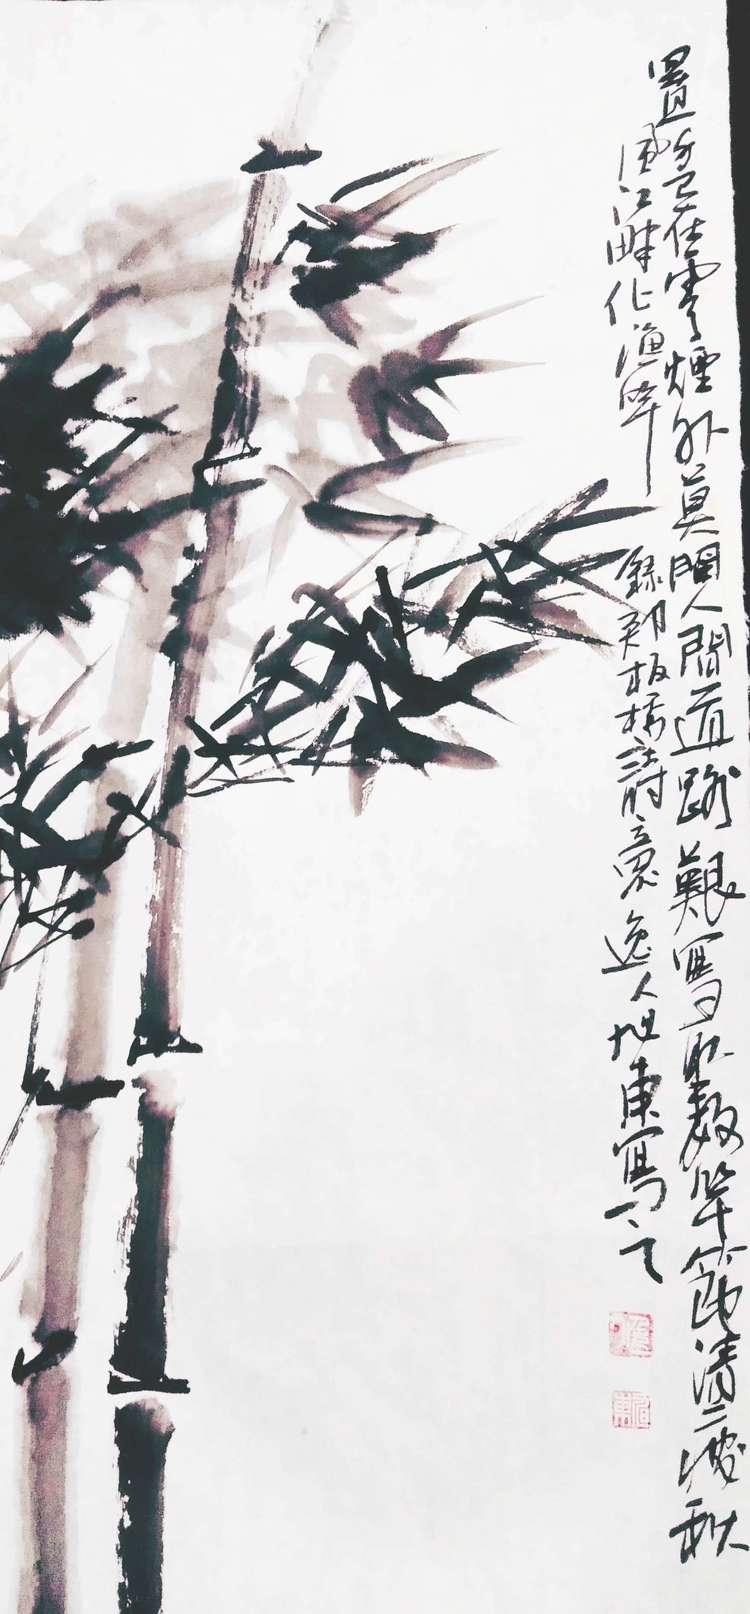 置身已在雲煙外莫問人間道路艱寫取數竿節清瘦秋
風江畔化漁竿
錄鄭板橋詩意逸人旭東寫之